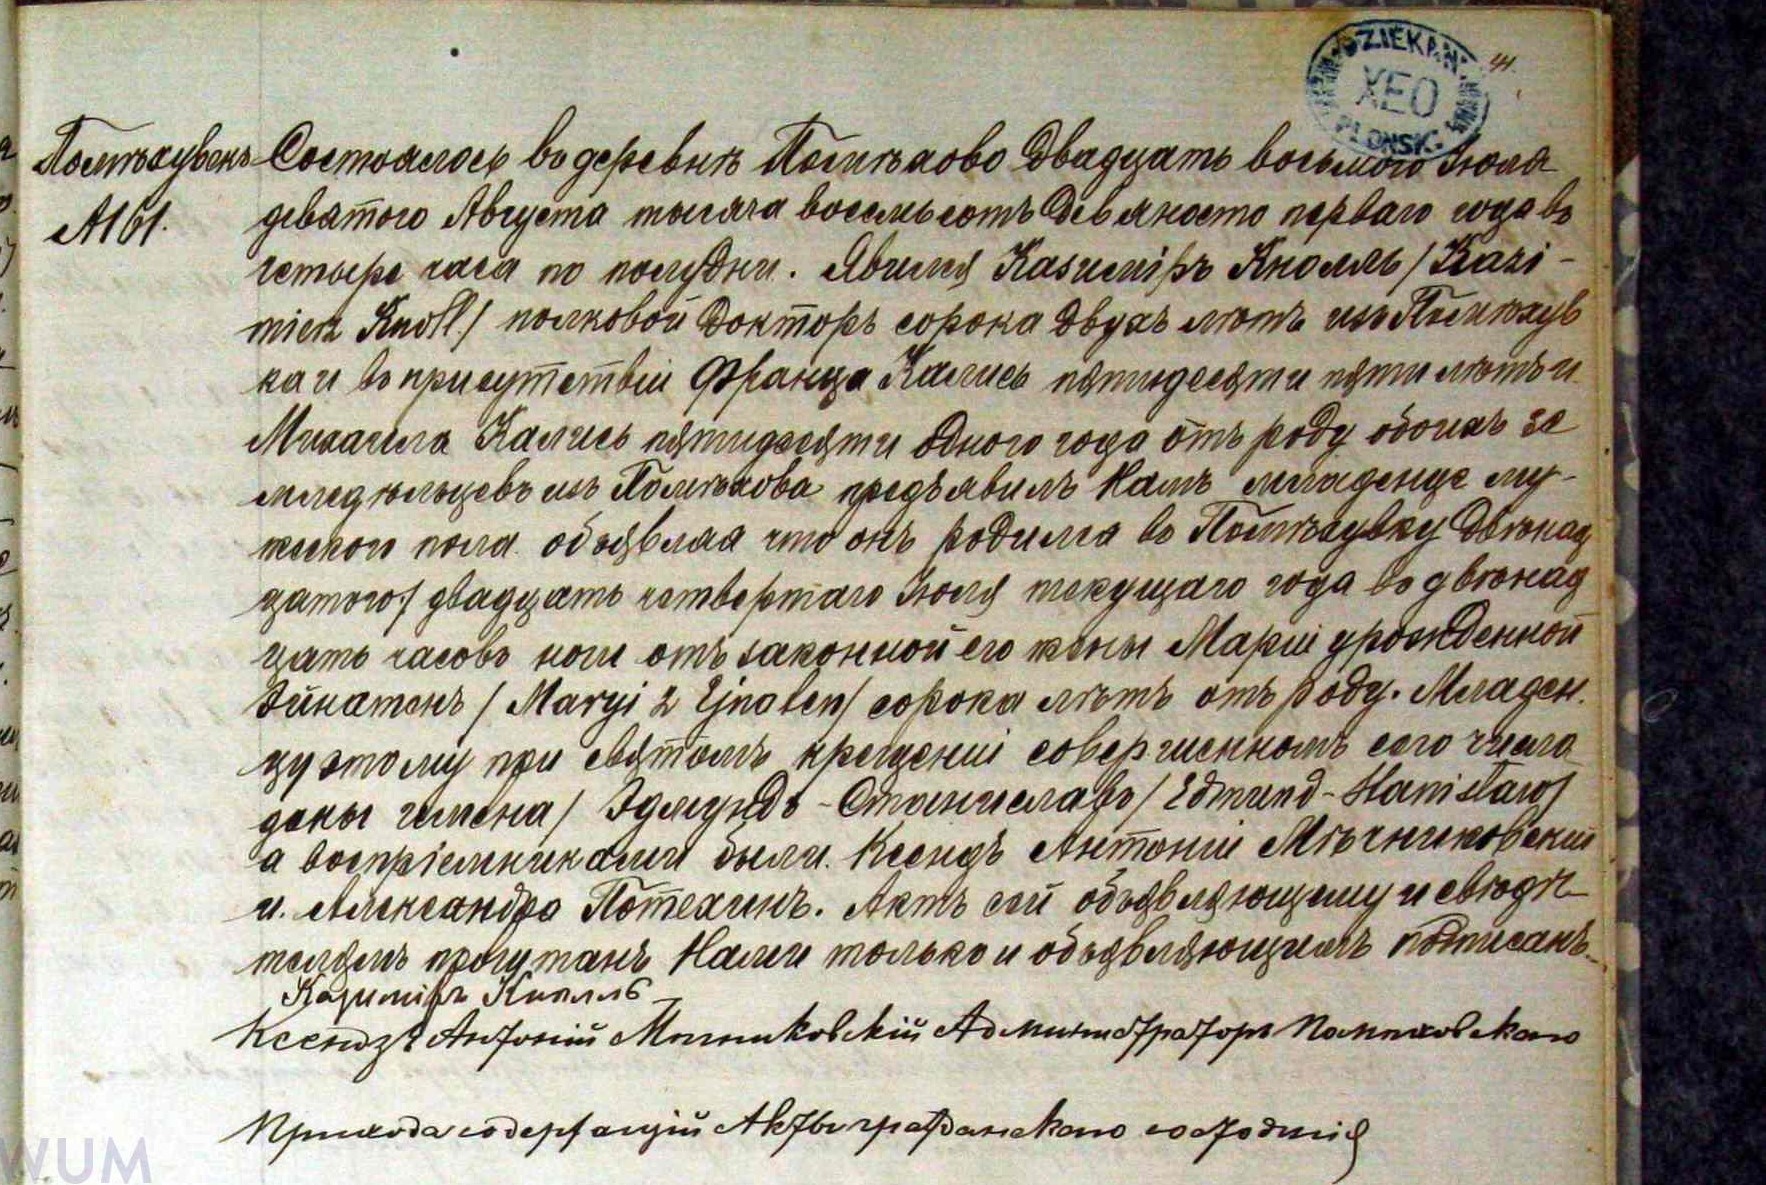 DZIEKAN
XEO
PŁOŃSK
41.
Помѣхувекъ
№161.
Состоялось въ деревнѣ Помѣхово двадцать восьмого Іюля
девятого Августа тысяча восемьсотъ девяносто перваго года въ
четыре часа по полудни. Явился Казимiръ Кнолль / Kazi-
mierz Knoll / полковой докторъ сорока двухъ лѣтъ изъ Помѣхув
ка и въ присутствіи Франца Кались пятидесяти пяти лѣтъ и
Михаила Кались пятидесяти одного года отъ роду обоихъ зе
мледѣльцевъ изъ Помѣхова предъявилъ Намъ младенца му-
жского пола объявляя что онъ родился въ Помѣхувку двѣнад
цатого / двадцать четвертаго Іюля текущаго года въ двѣнад
цать часовъ ночи отъ законной его жены Маріи урожденной
Эйнатенъ / Maryi z Ejnaten / сорока лѣтъ отъ роду. Младен
цу этому при святомъ крещеніи совершенномъ сего числа
даны имена / Эдмундъ-Станиславъ / Edmund-Stanisław /
а воспріемниками были Ксендъ Антоній Мѣчниковскій
и Александра Потехинъ. Актъ сей объявляющему и свѣдѣ-
телямъ прочитанъ Нами только и объявляющимъ подписанъ.
Казимiръ Кнолль
Ксендзъ Антоній Мѣчниковскій Администраторъ Помѣховскаго
Прихода содержащій Акты гражданскаго состоянія
WUM